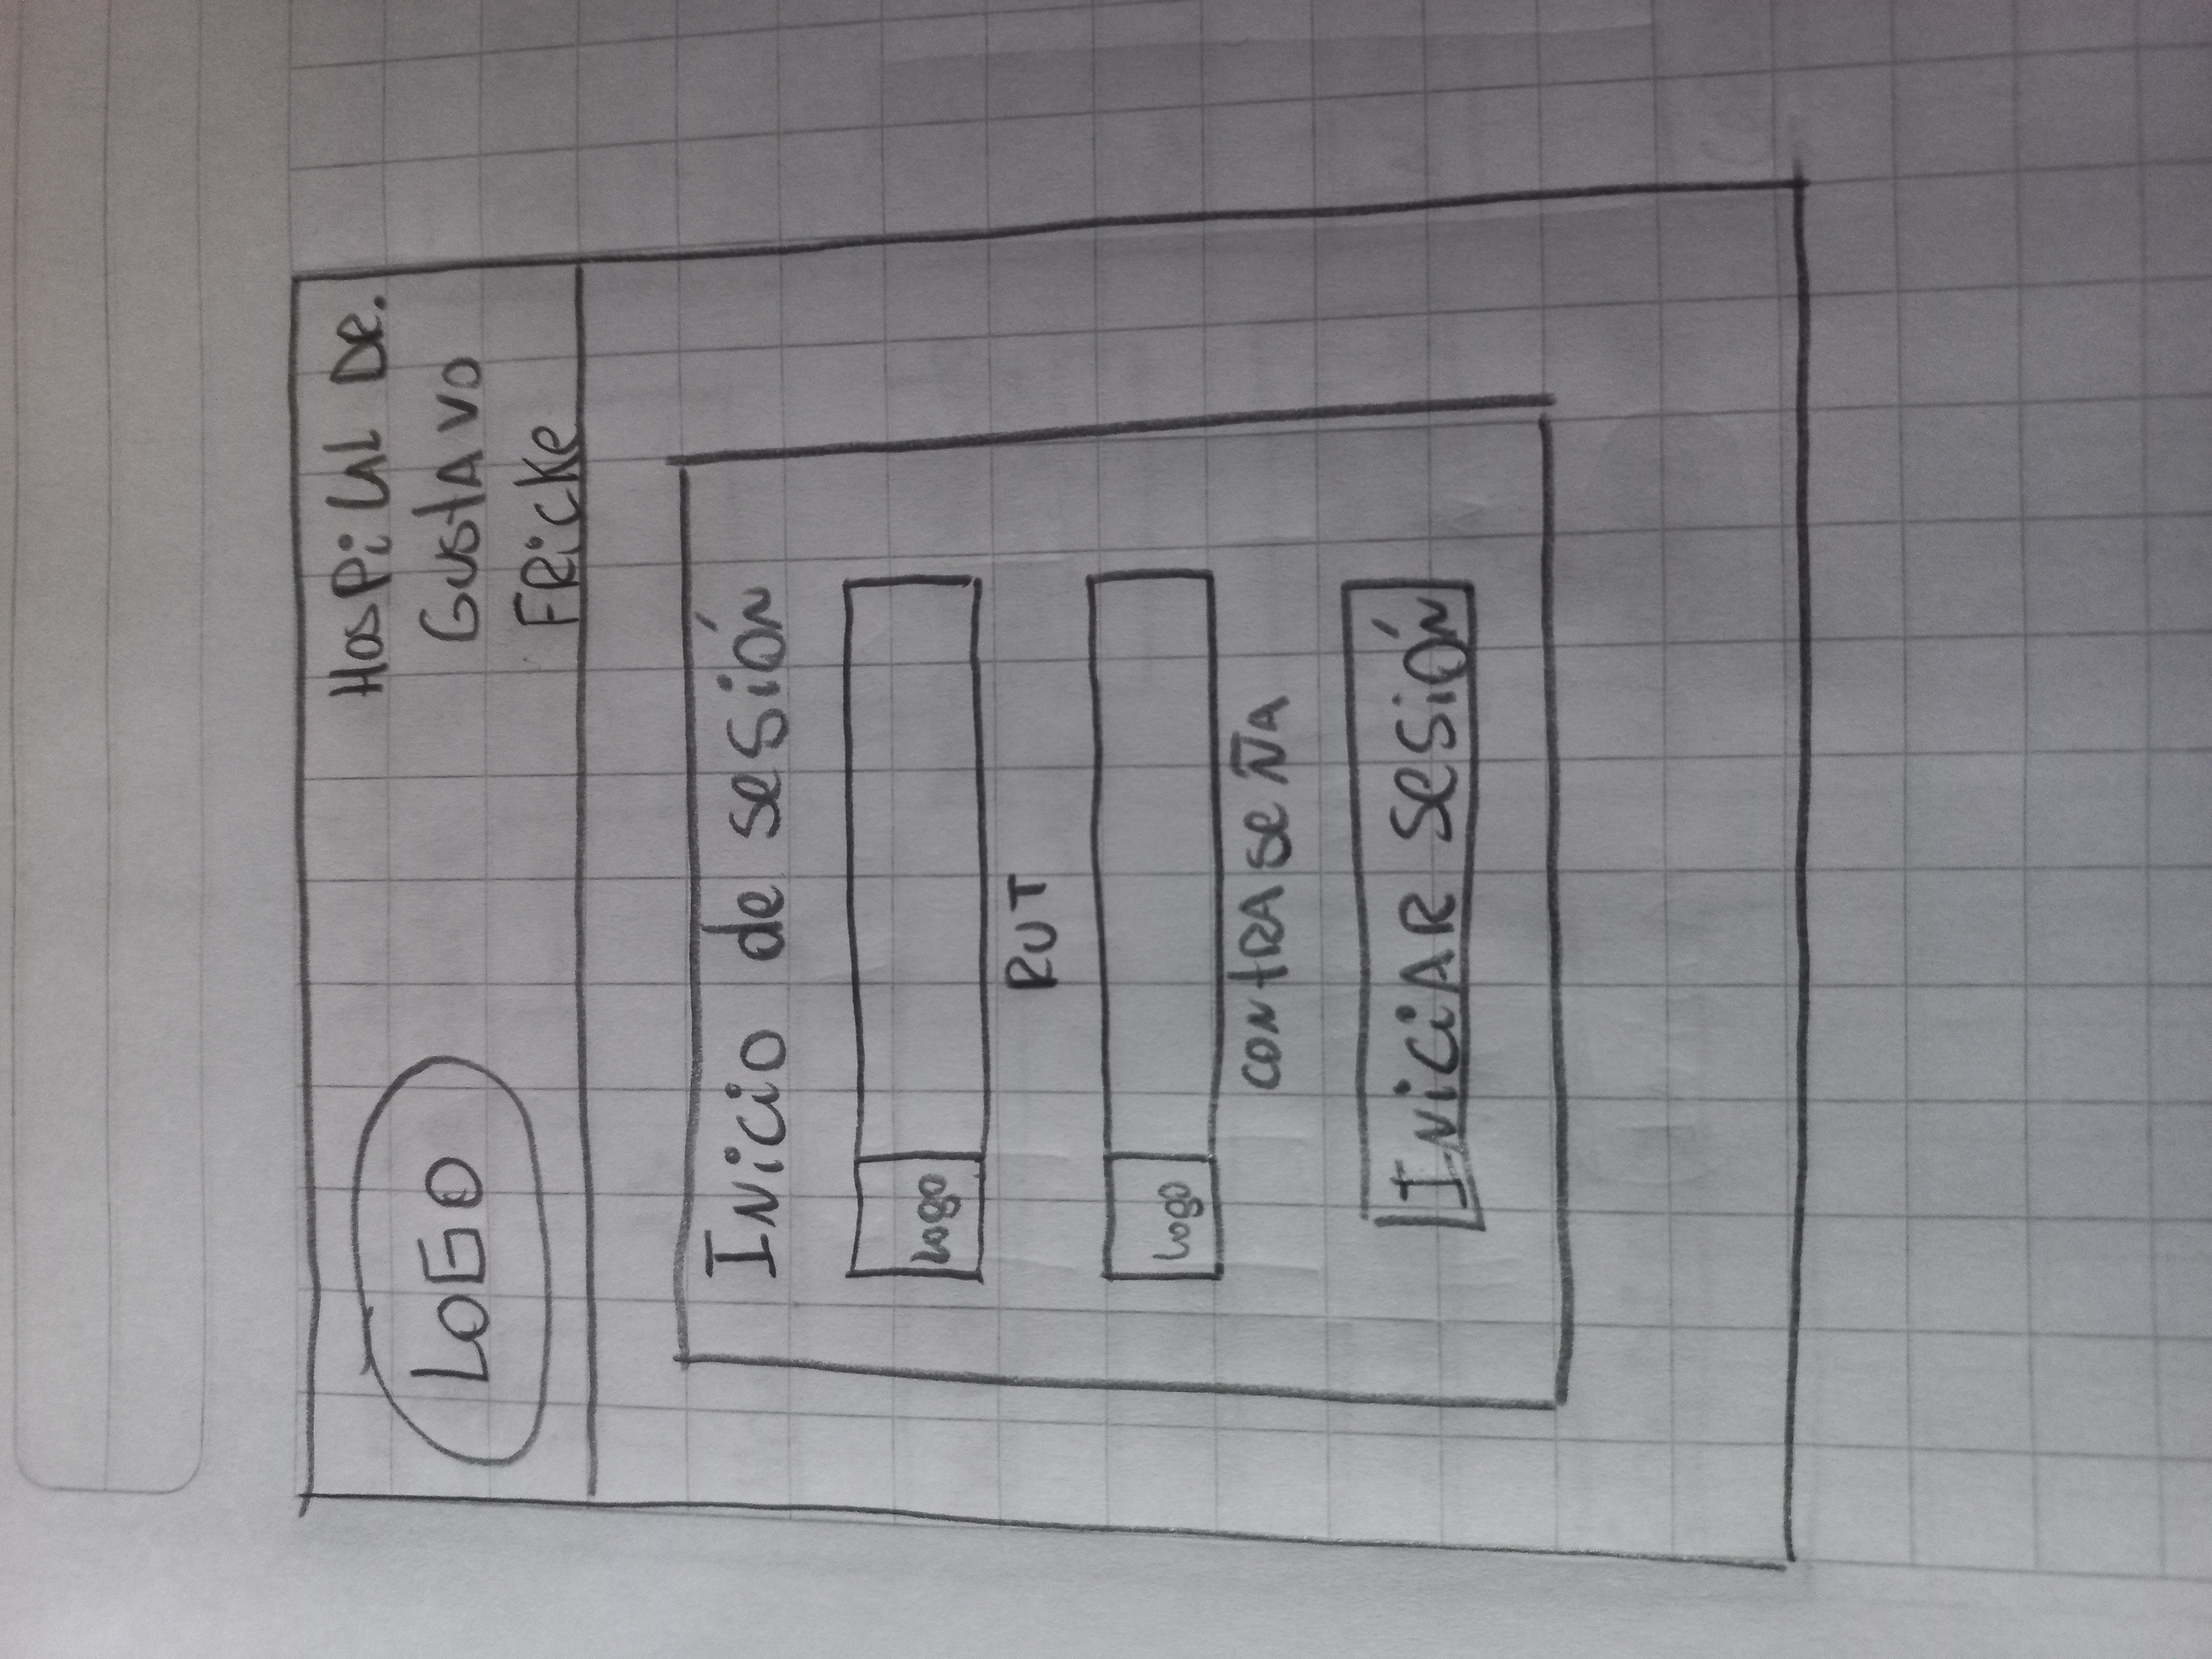 LOGO
Hospital DR.
Gustavo
Fricke
Inicio de sesión
Logo
RUT
Logo
CONTRASEÑA
INICIAR SESIÓN